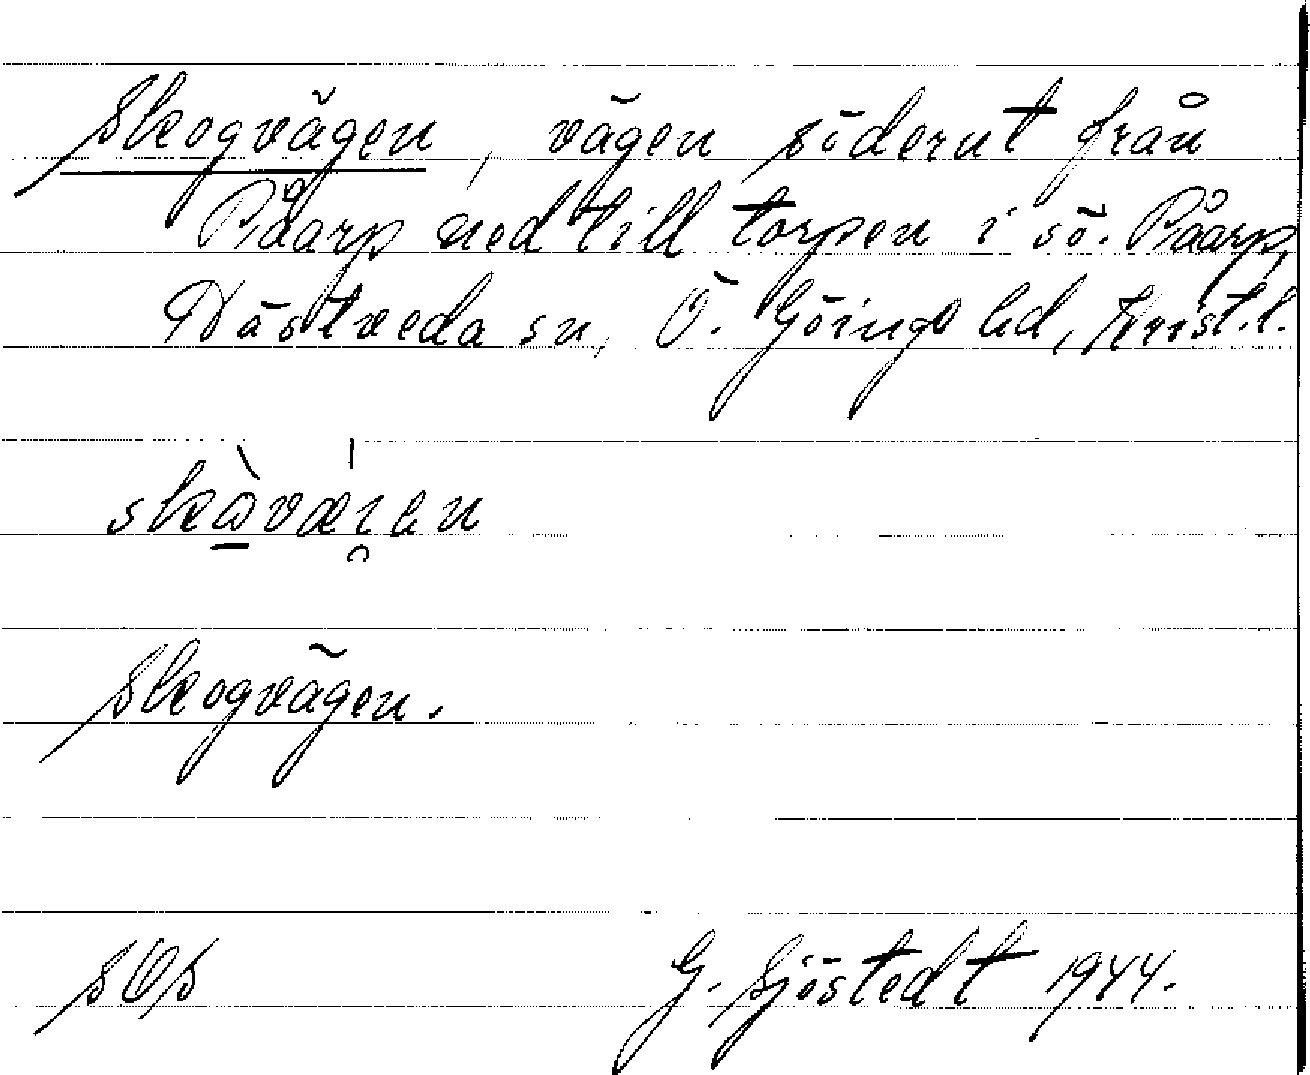 Skogvägen, vägen söderut från
Påarp ned till torpen i sö. Påarp,
Västveda sn, Ö. Göinge hd, Krist. l.
Skogvägen.
SOS G. Sjöstedt 1944.